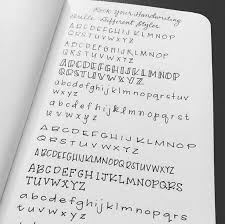 Rock Your Handwriting
Bullet Different Styles
ABCDEFGHIJKLMNOP
QRSTUVWXYZ
abcdefghijklmnop
qrstuvwxyz
ABCDEFGHIJKLMNOP
QRSTUVWXYZ
abcdefghijklmnopqrst
uvwxyz
abcdefghijklmnopqrst
uvwxyz
ABCDEFGHIJKLMNOP
QRSTUVWXYZ
ABCDEFGHIJKLMNOPQRSTUVWXYZ
ABCDEFGHIJKLMNOPQRS
TUVWXYZ
abcdefghijklmnopqrs